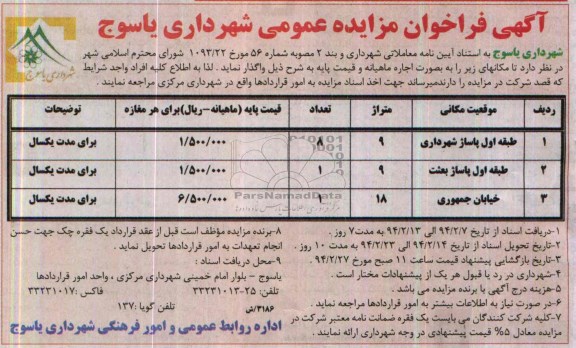 آگهی فراخوان مزایده عمومی شهرداری یاسوج
شهرداری یاسوج
شهرداری یاسوج به استناد آیین نامه معاملاتی شهرداری و بند ۲ مصوبه شماره ۵۶ مورخ ۱۰۹۳/۲۲ شورای محترم اسلامی شهر
در نظر دارد تا مکانهای زیر را به بصورت اجاره ماهیانه و قیمت پایه به شرح ذیل واگذار نماید . لذا به اطلاع کلیه افراد واجد شرایط
که قصد شرکت در مزایده را دارند میرساند جهت اخذ اسناد مزایده به امور قراردادها واقع در شهرداری مرکزی مراجعه نمایند .
ردیف موقعیت مکانی متراژ تعداد قیمت پایه (ماهیانه-ریال) برای هر مغازه توضیحات
۱ طبقه اول پاساژ شهرداری ۹ ۸ ۱/۵۰۰/۰۰۰ برای مدت یکسال
۲ طبقه اول پاساژ بعثت ۹ ۱ ۱/۵۰۰/۰۰۰ برای مدت یکسال
۳ خیابان جمهوری ۱۸ ۱ ۶/۵۰۰/۰۰۰ برای مدت یکسال
ParsNamadData
۱-دریافت اسناد از تاریخ ۹۴/۲/۷ الی ۹۴/۲/۱۳ به مدت ۷ روز .
۲-تاریخ تحویل اسناد از تاریخ ۹۴/۲/۱۴ الی ۹۴/۲/۲۳ به مدت ۱۰ روز .
۳-تاریخ بازگشایی پیشنهاد قیمت ساعت ۱۱ صبح مورخ ۹۴/۲/۲۷
۴-شهرداری در رد یا قبول هر یک از پیشنهادات مختار است .
۵-هزینه درج آگهی با برنده مزایده می باشد .
۶-در صورت نیاز به اطلاعات بیشتر به امور قراردادها مراجعه نمایید .
۷-کلیه شرکت کنندگان می بایست یک فقره ضمانت نامه معتبر شرکت در
مزایده معادل ۵% قیمت پیشنهادی در وجه شهرداری ارائه نمایند .
۸-برنده مزایده مؤظف است قبل از عقد قرارداد یک فقره چک جهت حسن
انجام تعهدات به امور قراردادها تحویل نماید .
۹-محل دریافت اسناد :
یاسوج - بلوار امام خمینی شهرداری مرکزی ، واحد امور قراردادها
تلفن: ۲۵-۳۳۲۳۱۰۱۳ فاکس: ۳۳۲۳۱۰۱۷
تلفن گویا: ۱۳۷
۴۱۸۶/ش
اداره روابط عمومی و امور فرهنگی شهرداری یاسوج